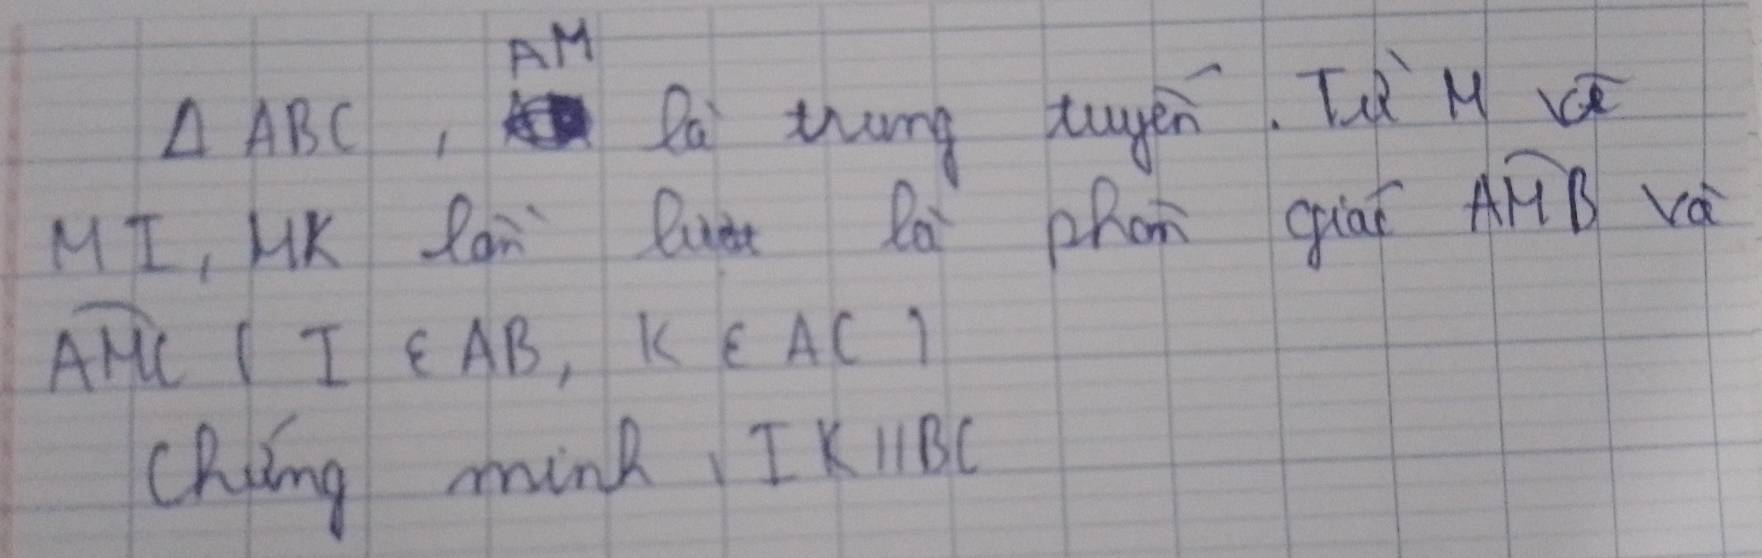 AM
Δ ABC, là trung tuyến. Từ M vẽ
MI, MK lần lượt là phân giác AMB và
AMC ( I ∈ AB, K ∈ AC )
Chứng minh, IK // BC